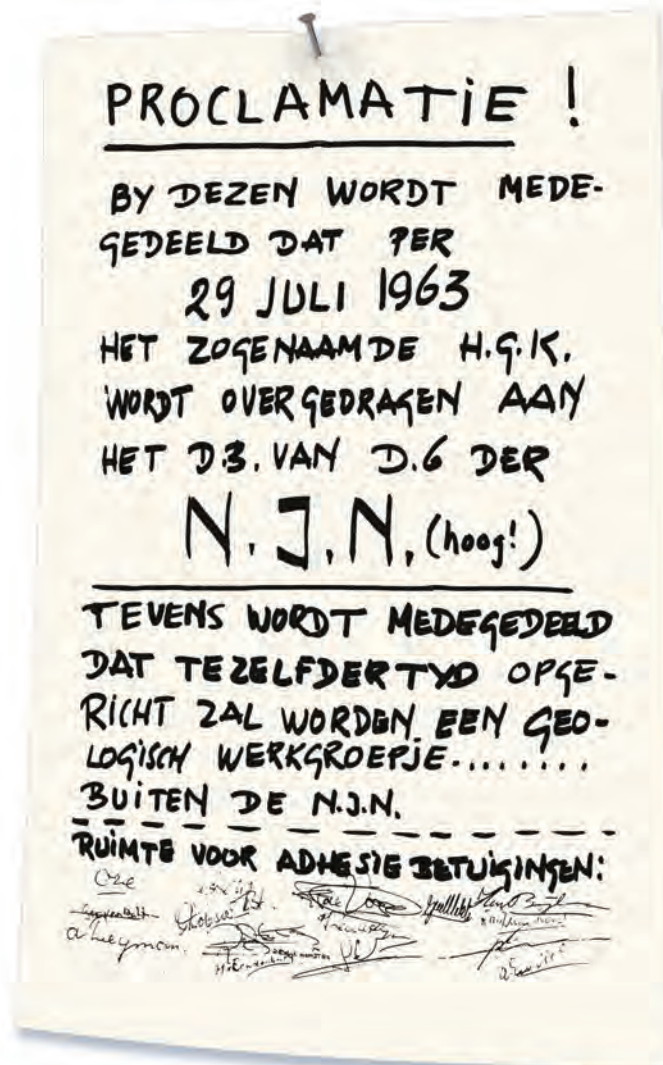 PROCLAMATiE !
BY DEZEN WORDT MEDE-
GEDEELD DAT PER
29 JULI 1963
HET ZOGENAAMDE H.G.K.
WORDT OVERGEDRAGEN AAN
HET D.B. VAN D.6 DER
N.J.N. (hoog!)
TEVENS WORDT MEDEGEDEELD
DAT TEZELFDERTYD OPGE-
RICHT ZAL WORDEN EEN GEO-
LOGiSCH WERKGROEPJE........
BUiTEN DE N.J.N.
RUiMTE VOOR ADHESIE BETUiGiNGEN: